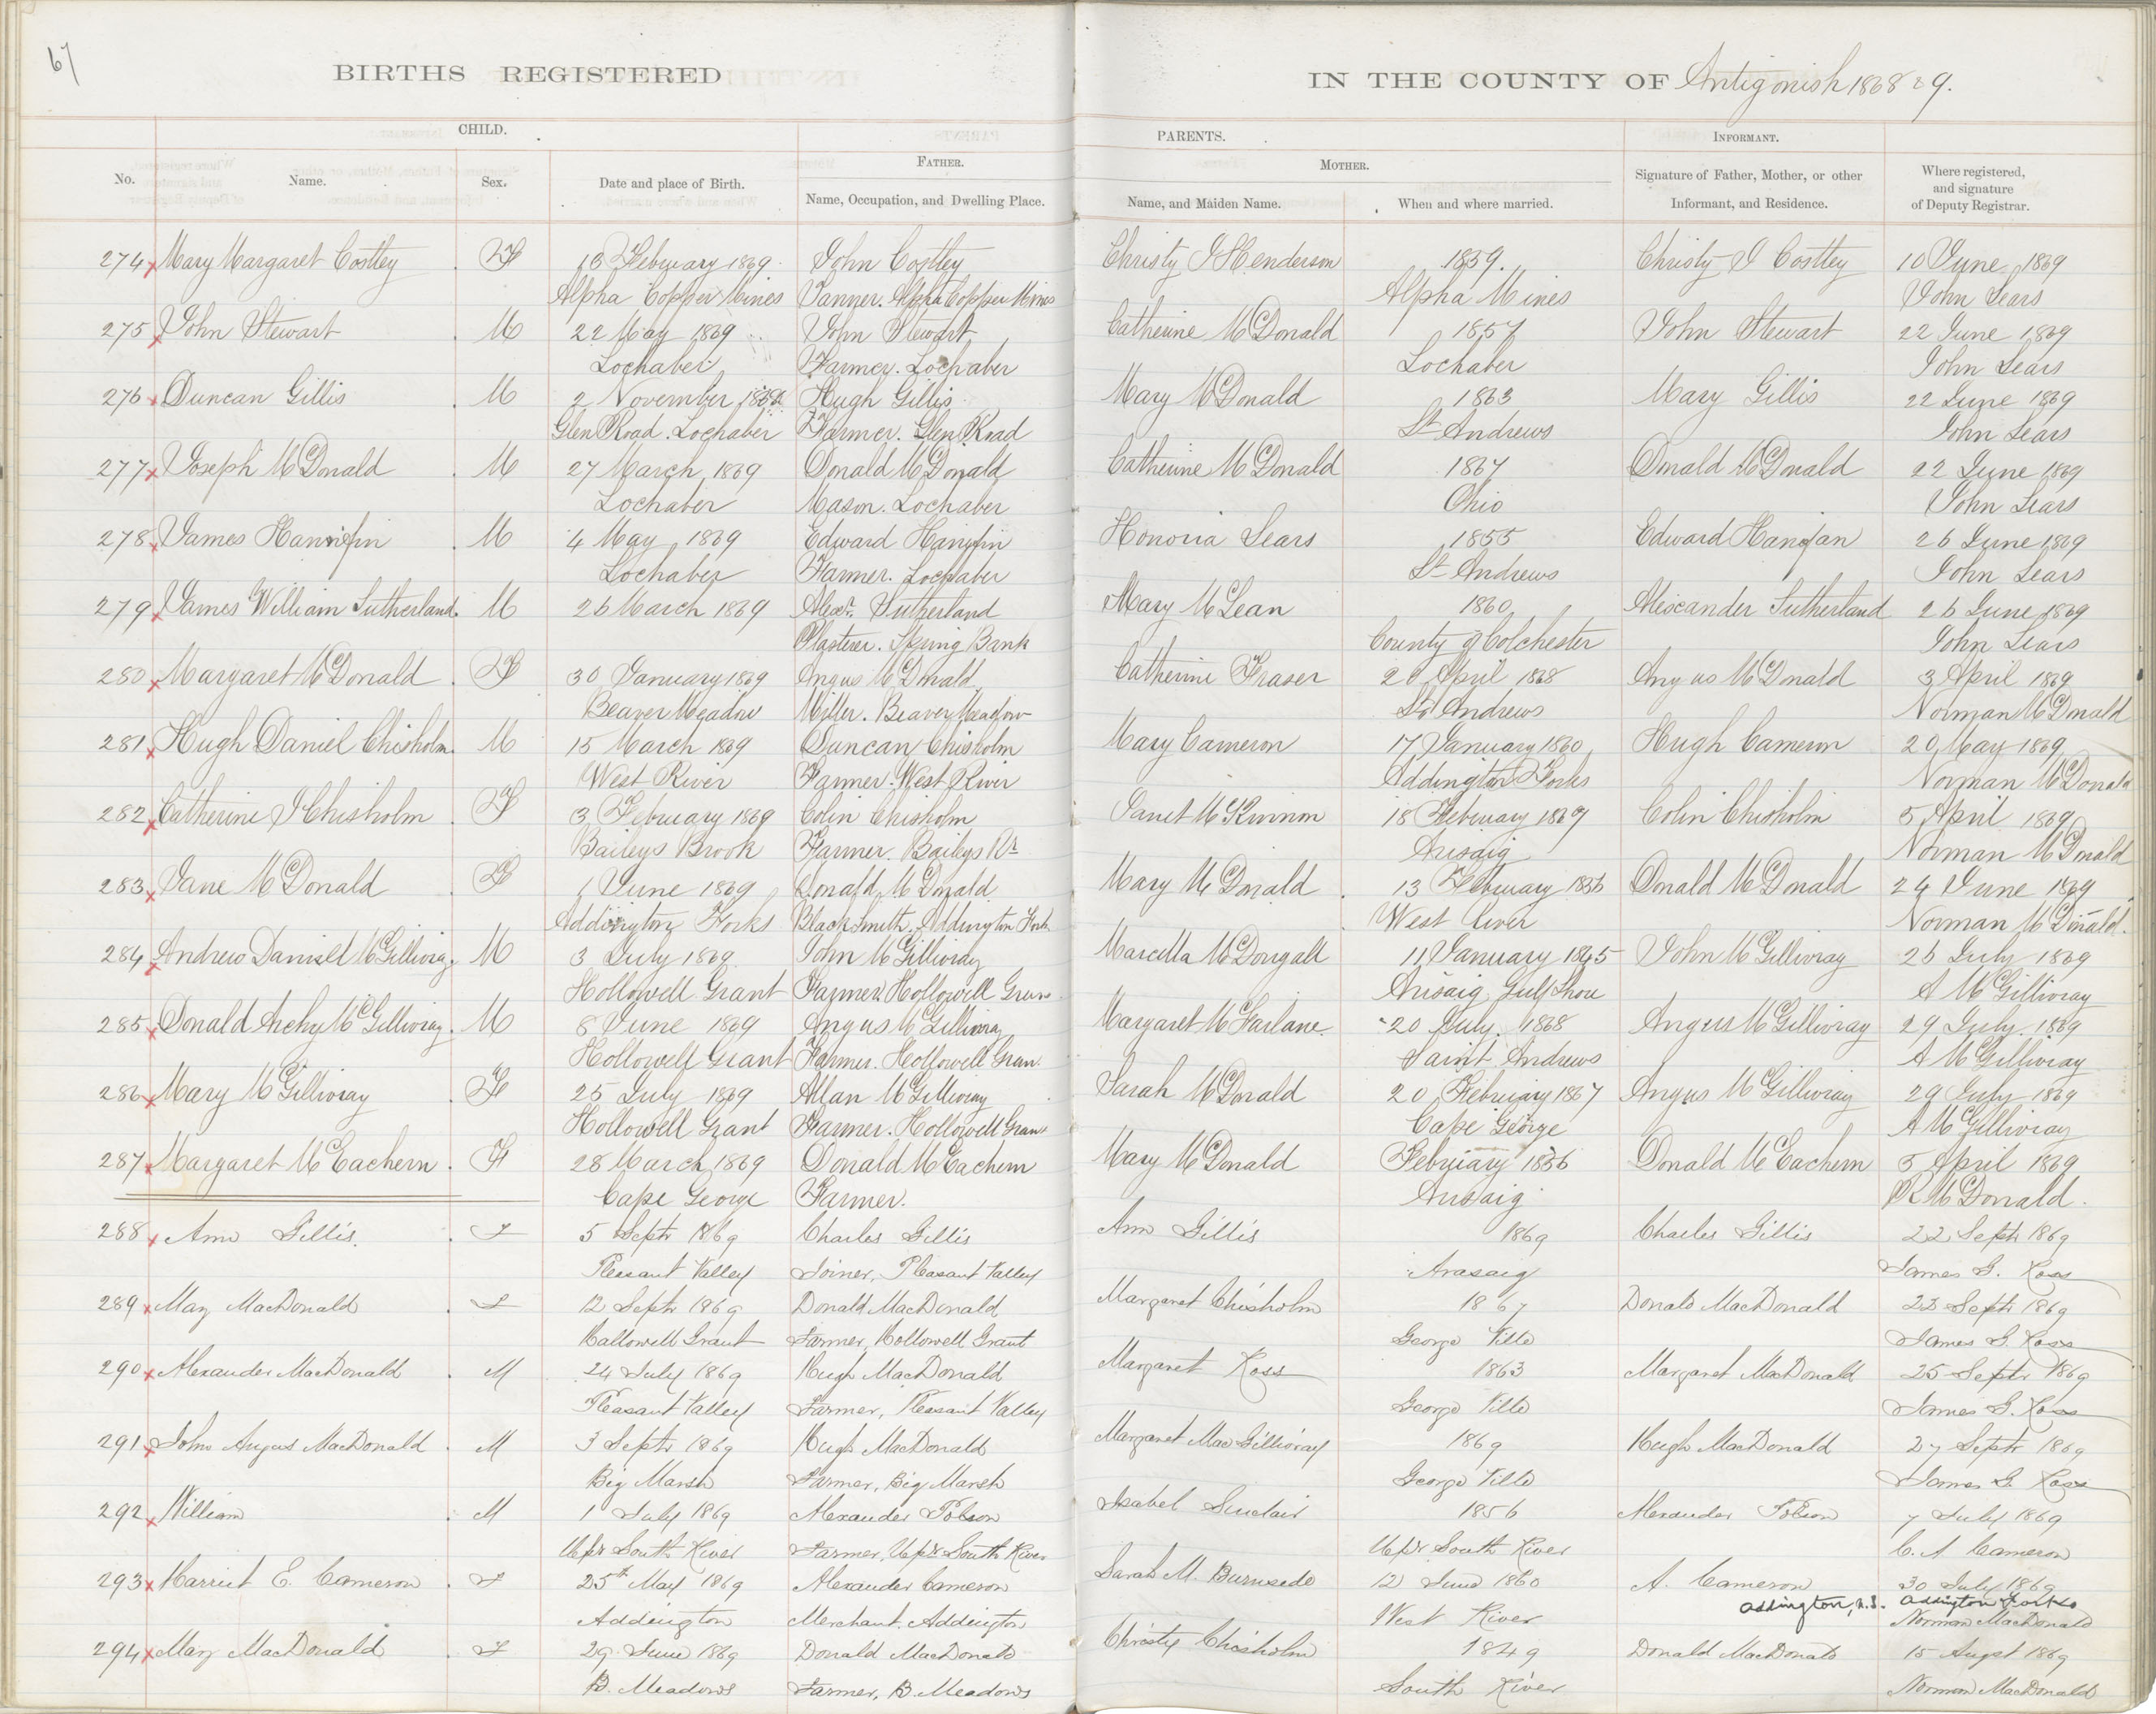 67
BIRTHS REGISTERED IN THE COUNTY OF Antigonish 1868 & 9.
CHILD. PARENTS. INFORMANT.
FATHER. MOTHER.
No. Name. Sex. Date and place of Birth. Name, Occupation, and Dwelling Place. Name, and Maiden Name. When and where married. Signature of Father, Mother, or other Informant, and Residence. Where registered, and signature of Deputy Registrar.
274 Mary Margaret Costley F 13 February 1869 John Costley Christy J Henderson 1859. Christy J Costley 10 June 1869
Alpha Copper Mines Tanner. Alpha Copper Mines Alpha Mines John Sears
275 John Stewart M 22 May 1869 John Stewart Catherine McDonald 1857 John Stewart 22 June 1869
Lochaber Farmer. Lochaber Lochaber John Sears
276 Duncan Gillis M 2 November Hugh Gillis Mary McDonald 1863 Mary Gillis 22 June 1869
Glen Road. Lochaber Farmer. Glen Road St Andrews John Sears
277 Joseph McDonald M 27 March 1869 Donald McDonald Catherine McDonald 1867 Donald McDonald 22 June 1869
Lochaber Mason. Lochaber Ohio John Sears
278 James Hannifin M 4 May 1869 Edward Hanifin Honoria Sears 1855 Edward Hanifan 26 June 1869
Lochaber Farmer. Lochaber St Andrews John Sears
279 James William Sutherland M 26 March 1869 Alexr. Sutherland Mary McLean 1860 Alexander Sutherland 26 June 1869
Plasterer. Spring Bank County of Colchester John Sears
280 Margaret McDonald F 30 January 1869 Angus McDonald Catherine Fraser 20 April 1868 Angus McDonald 3 April 1869
Beaver Meadow Miller. Beaver Meadow St Andrews Norman McDonald
281 Hugh Daniel Chisholm M 15 March 1869 Duncan Chisholm Mary Cameron 17 January 1860 Hugh Cameron 20 May 1869
West River Farmer. West River Addington Forks Norman McDonald
282 Catherine J Chisholm F 3 February 1869 Colin Chisholm Janet McKinnon 18 February 1867 Colin Chisholm 5 April 1869
Baileys Brook Farmer. Baileys Br Arisaig Norman McDonald
283 Jane McDonald F 1 June 1869 Donald McDonald Mary McDonald 13 February 1856 Donald McDonald 24 June 1869
Addington Forks Blacksmith. Addington Forks West River Norman McDonald.
284 Andrew Daniel McGillivray M 3 July 1869 John McGillivray Marcella McDougall 11 January 1845 John McGillivray 26 July 1869
Hollowell Grant Farmer. Hollowell Gran Arisaig Gulf Shore A McGillivray
285 Donald Archy McGillivray M 8 June 1869 Angus McGillivray Margaret McFarlane 20 July. 1868 Angus McGillivray 29 July. 1869
Hollowell Grant Farmer. Hollowell Gran Saint Andrews A McGillivray
286 Mary McGillivray F 25 July 1869 Allan McGillivray Sarah McDonald 20 February 1867 Angus McGillivray 29 July 1869
Hollowell Grant Farmer. Hollowell Grant Cape George A McGillivray
287 Margaret McEachern F 28 March 1869 Donald McEachern Mary McDonald February 1856 Donald McEachern 5 April 1869
Cape George Farmer. Arisaig R McDonald.
288 Ann Gillis F 5 Septr 1869 Charles Gillis Ann Gillis 1869 Charles Gillis 22 Septr 1869
Pleasant Valley Joiner, Pleasant Valley Arasaig James G. Ross
289 Mary MacDonald F 12 Septr 1869 Donald MacDonald Margaret Chisholm 1867 Donald MacDonald 23 Septr 1869
Hallowell Grant Farmer, Hollowell Grant George Ville James G. Ross
290 Alexander MacDonald M 24 July 1869 Hugh MacDonald Margaret Ross 1863 Margaret MacDonald 25 Septr 1869
Pleasant Valley Farmer, Pleasant Valley George Ville James G. Ross
291 John Angus MacDonald M 3 Septr 1869 Hugh MacDonald Margaret MacGillivray 1869 Hugh MacDonald 27 Septr 1869
Big Marsh Farmer, Big Marsh George Ville James G. Ross
292 William M 1 July 1869 Alexander Polson Isabel Sinclair 1856 Alexander Polson 7 July 1869
Upr South River Farmer, Upr South River Upr South River C. A Cameron
293 Harriet E. Cameron F 25th May 1869 Alexander Cameron Sarah M. Burnside 12 June 1860 A. Cameron 30 July 1869
Addington Merchant. Addington West River Addington, N.S. Addington Forks
Norman MacDonald
294 Mary MacDonald F 29 June 1869 Donald MacDonald Christy Chisholm 1849 Donald MacDonald 15 Augst 1869
B. Meadows Farmer, B. Meadows South River Norman MacDonald